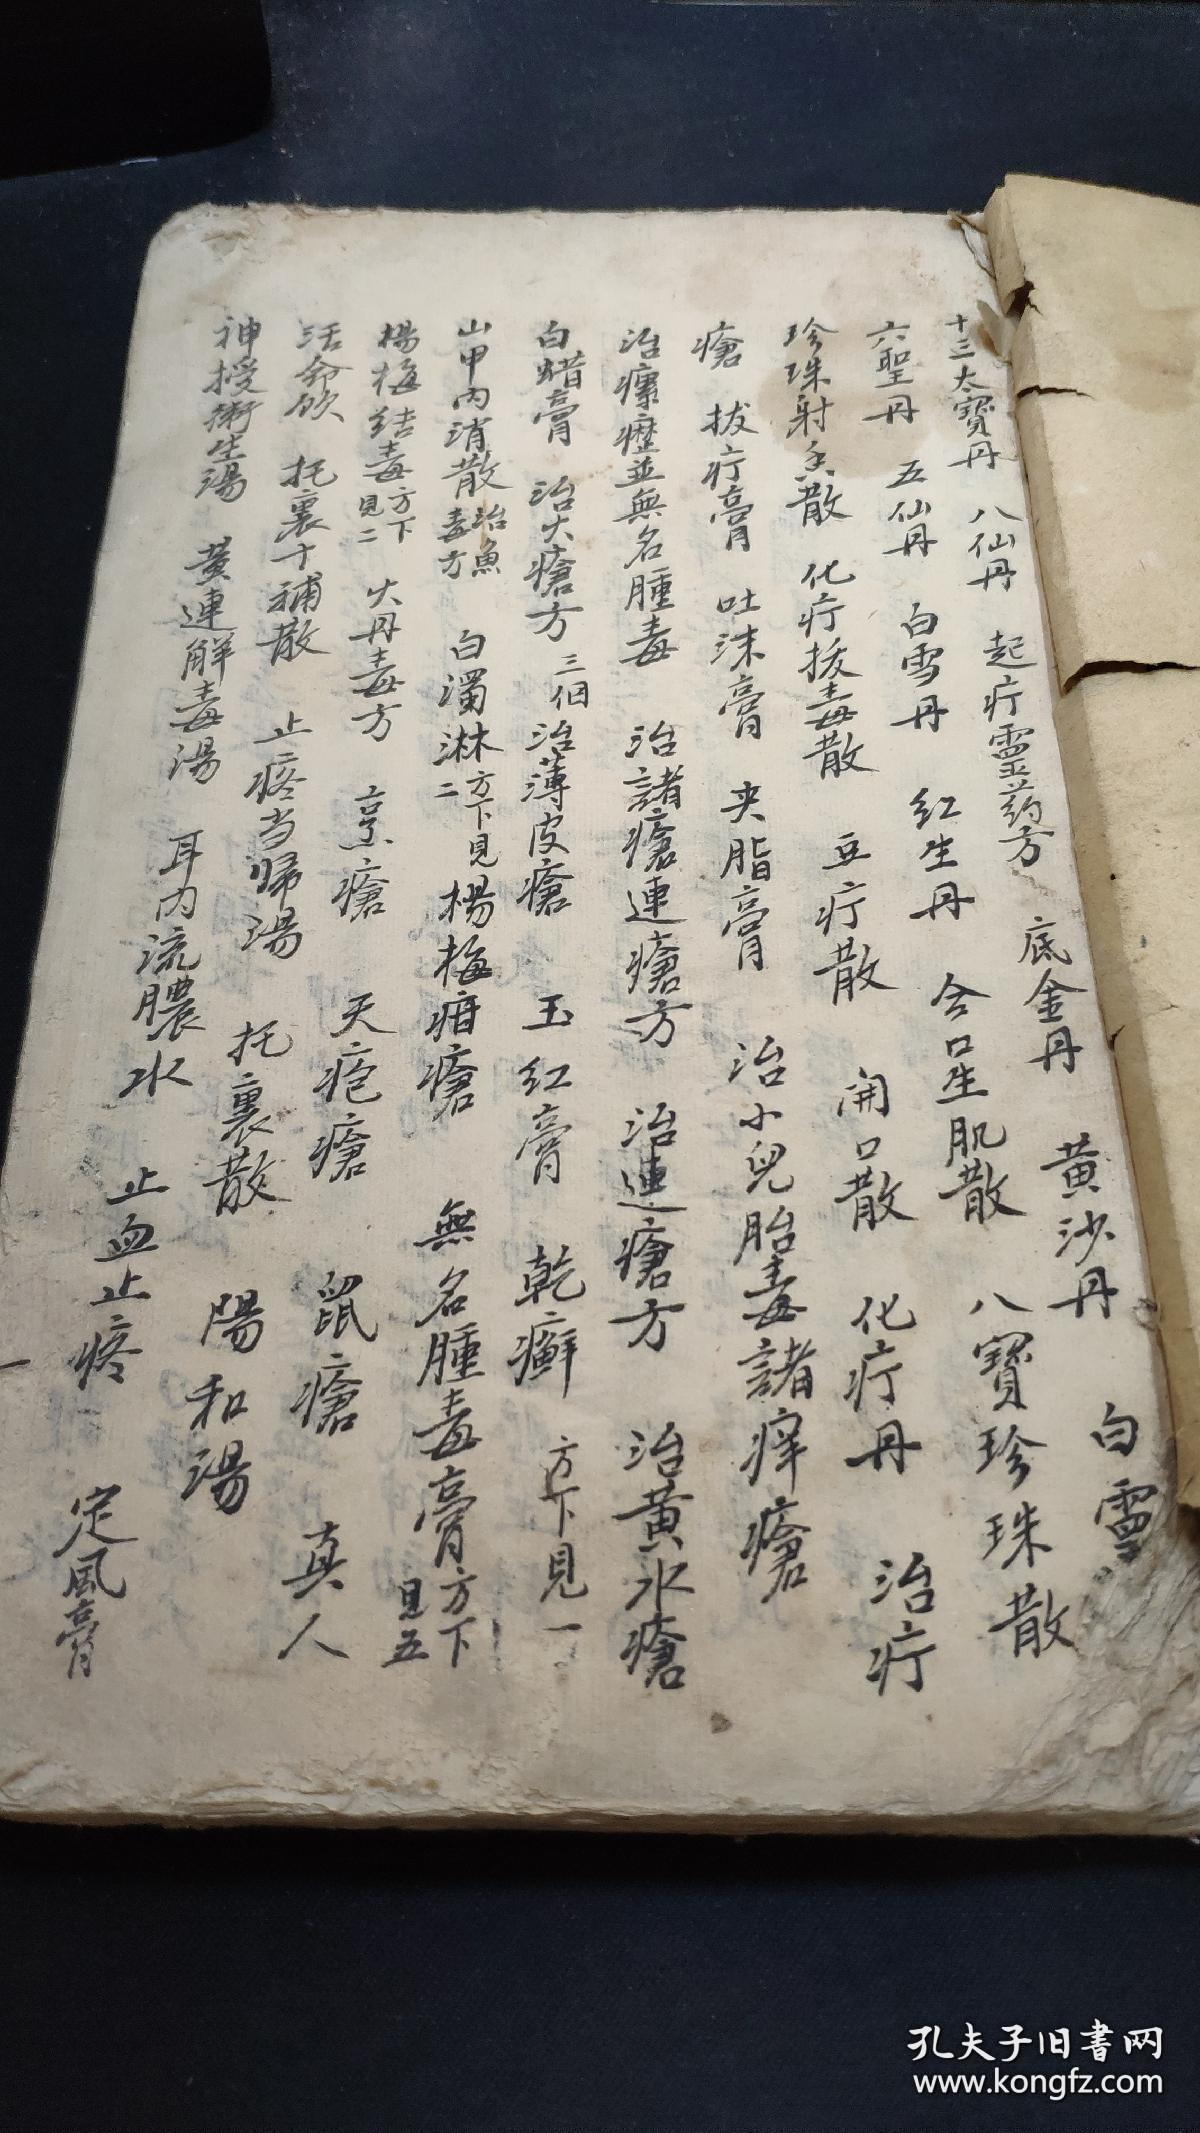 十三太寶丹　八仙丹　起疔靈药方　底金丹　黄沙丹　白靈
六聖丹　五仙丹　白雪丹　红生丹　合口生肌散　八寶珍珠散
珍珠射香散　化疔拔毒散　豆疔散　開口散　化疔丹　治疔
瘡　拔疔膏　吐沫膏　夹脂膏　治小兒胎毒諸痒瘡
治瘰癧並無名腫毒　治諸瘡連瘡方　治連瘡方　治黄水瘡
白蜡膏　治火瘡方　三個　治薄皮瘡　玉红膏　乾癬　方下見一
山甲内消散　治魚毒方　白濁淋　方下見二　楊梅疳瘡　無名腫毒膏　方下見五
楊梅结毒　方下見二　火丹毒方　烹瘡　天疱瘡　鼠瘡　真人
活命飲　托裏十補散　止疼当歸湯　托裏散　陽和湯
神授衛生湯　黄連解毒湯　耳内流膿水　止血止疼　定風膏
孔夫子旧書网
www.kongfz.com